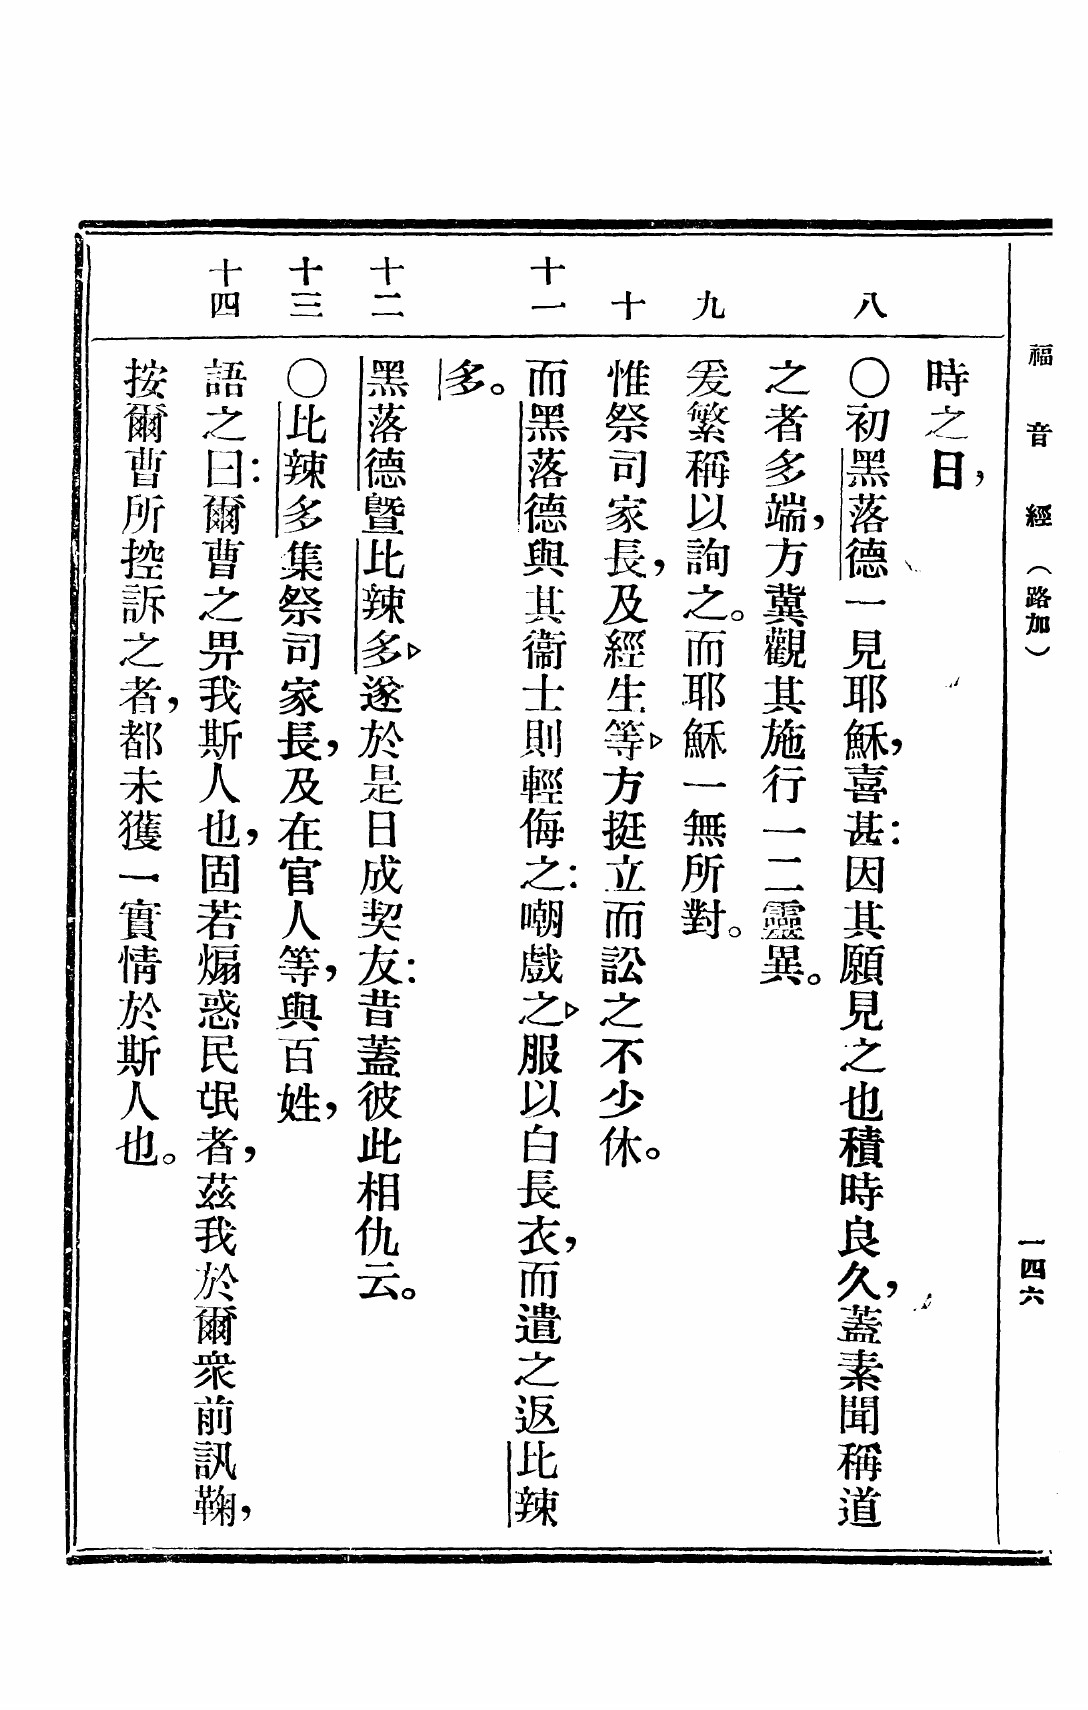 福音經（路加）
一四六
時之日，
八
〇初黑落德一見耶穌，喜甚：因其願見之也積時良久，蓋素聞稱道
之者多端，方冀觀其施行一二靈異。
九
爰繁稱以詢之。而耶穌一無所對。
十
惟祭司家長，及經生等▹方挺立而訟之不少休。
十一
而黑落德與其衞士則輕侮之：嘲戲之▹服以白長衣，而遣之返比辣
多。
十二
黑落德暨比辣多▹遂於是日成契友：昔蓋彼此相仇云。
十三
〇比辣多集祭司家長，及在官人等，與百姓，
十四
語之曰：爾曹之畀我斯人也，固若煽惑民氓者，茲我於爾衆前訊鞠，
按爾曹所控訴之者，都未獲一實情於斯人也。